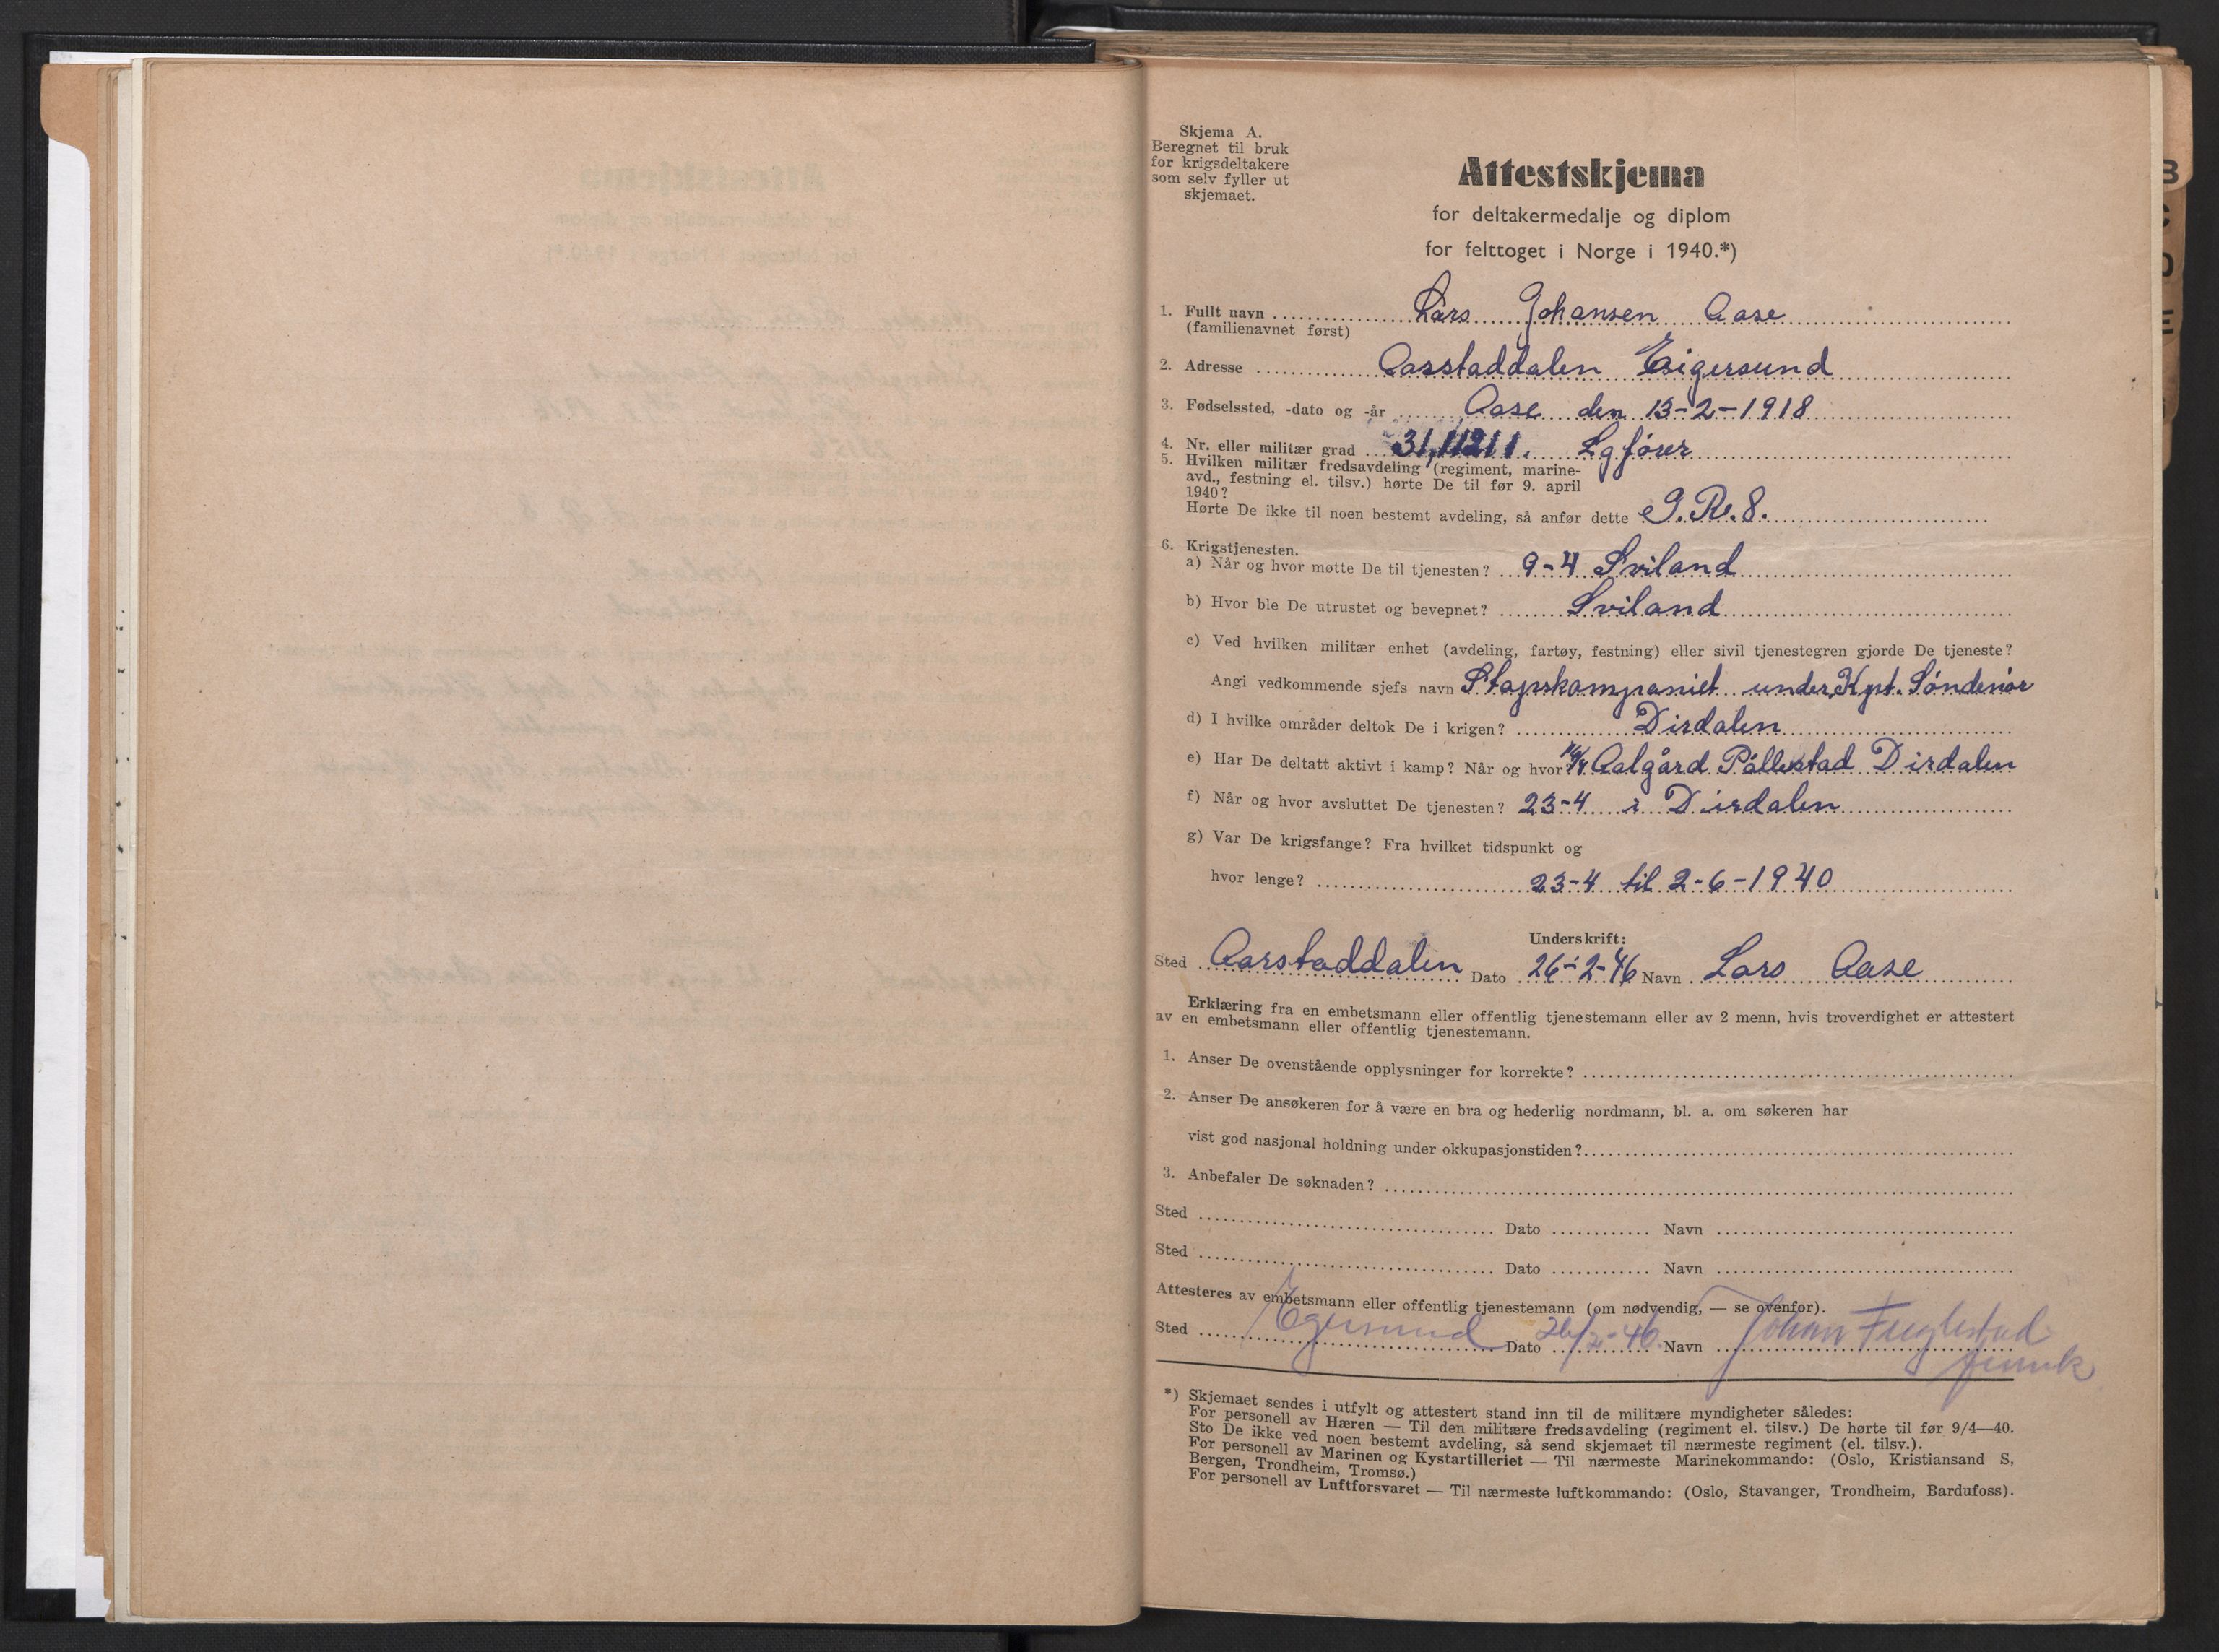 Skjema A.
Beregnet til bruk
for krigsdeltakere
som selv fyller ut
skjemaet.
Attestskjema
for deltakermedalje og diplom
for felttoget i Norge i 1940.*)
1. Fullt navn Lars Johansen Aase
(familienavnet først)
2. Adresse Aarstaddalen Eigersund
3. Fødselssted, -dato og -år Aase den 13-2-1918
4. Nr. eller militær grad Lgfører
5. Hvilken militær fredsavdeling (regiment, marine-
avd., festning el. tilsv.) hørte De til før 9. april
1940?
Hørte De ikke til noen bestemt avdeling, så anfør dette I.R. 8.
6. Krigstjenesten.
a) Når og hvor møtte De til tjenesten? 9-4 Sviland
b) Hvor ble De utrustet og bevepnet? Sviland
c) Ved hvilken militær enhet (avdeling, fartøy, festning) eller sivil tjenestegren gjorde De tjeneste?
Angi vedkommende sjefs navn Stapskompaniet under Kpt.
d) I hvilke områder deltok De i krigen? Dirdalen
e) Har De deltatt aktivt i kamp? Når og hvor Aalgård Pollestad Dirdalen
f) Når og hvor avsluttet De tjenesten? 23-4 i Dirdalen
g) Var De krigsfange? Fra hvilket tidspunkt og
hvor lenge? 23-4 til 2-6-1940
Underskrift:
Sted Aarstaddalen Dato 26-2-46 Navn Lars Aase
Erklæring fra en embetsmann eller offentlig tjenestemann eller av 2 menn, hvis troverdighet er attestert
av en embetsmann eller offentlig tjenestemann.
1. Anser De ovenstående opplysninger for korrekte?
2. Anser De ansøkeren for å være en bra og hederlig nordmann, bl. a. om søkeren har
vist god nasjonal holdning under okkupasjonstiden?
3. Anbefaler De søknaden?
Sted Dato Navn
Sted Dato Navn
Attesteres av embetsmann eller offentlig tjenestemann (om nødvendig, — se ovenfor).
Sted Egersund Dato 26/2-46 Navn Johan Fuglestad
*) Skjemaet sendes i utfylt og attestert stand inn til de militære myndigheter således:
For personell av Hæren — Til den militære fredsavdeling (regiment el. tilsv.) De hørte til før 9/4—40.
Sto De ikke ved noen bestemt avdeling, så send skjemaet til nærmeste regiment (el. tilsv.).
For personell av Marinen og Kystartilleriet — Til nærmeste Marinekommando: (Oslo, Kristiansand S,
Bergen, Trondheim, Tromsø.)
For personell av Luftforsvaret — Til nærmeste luftkommando: (Oslo, Stavanger, Trondheim, Bardufoss).